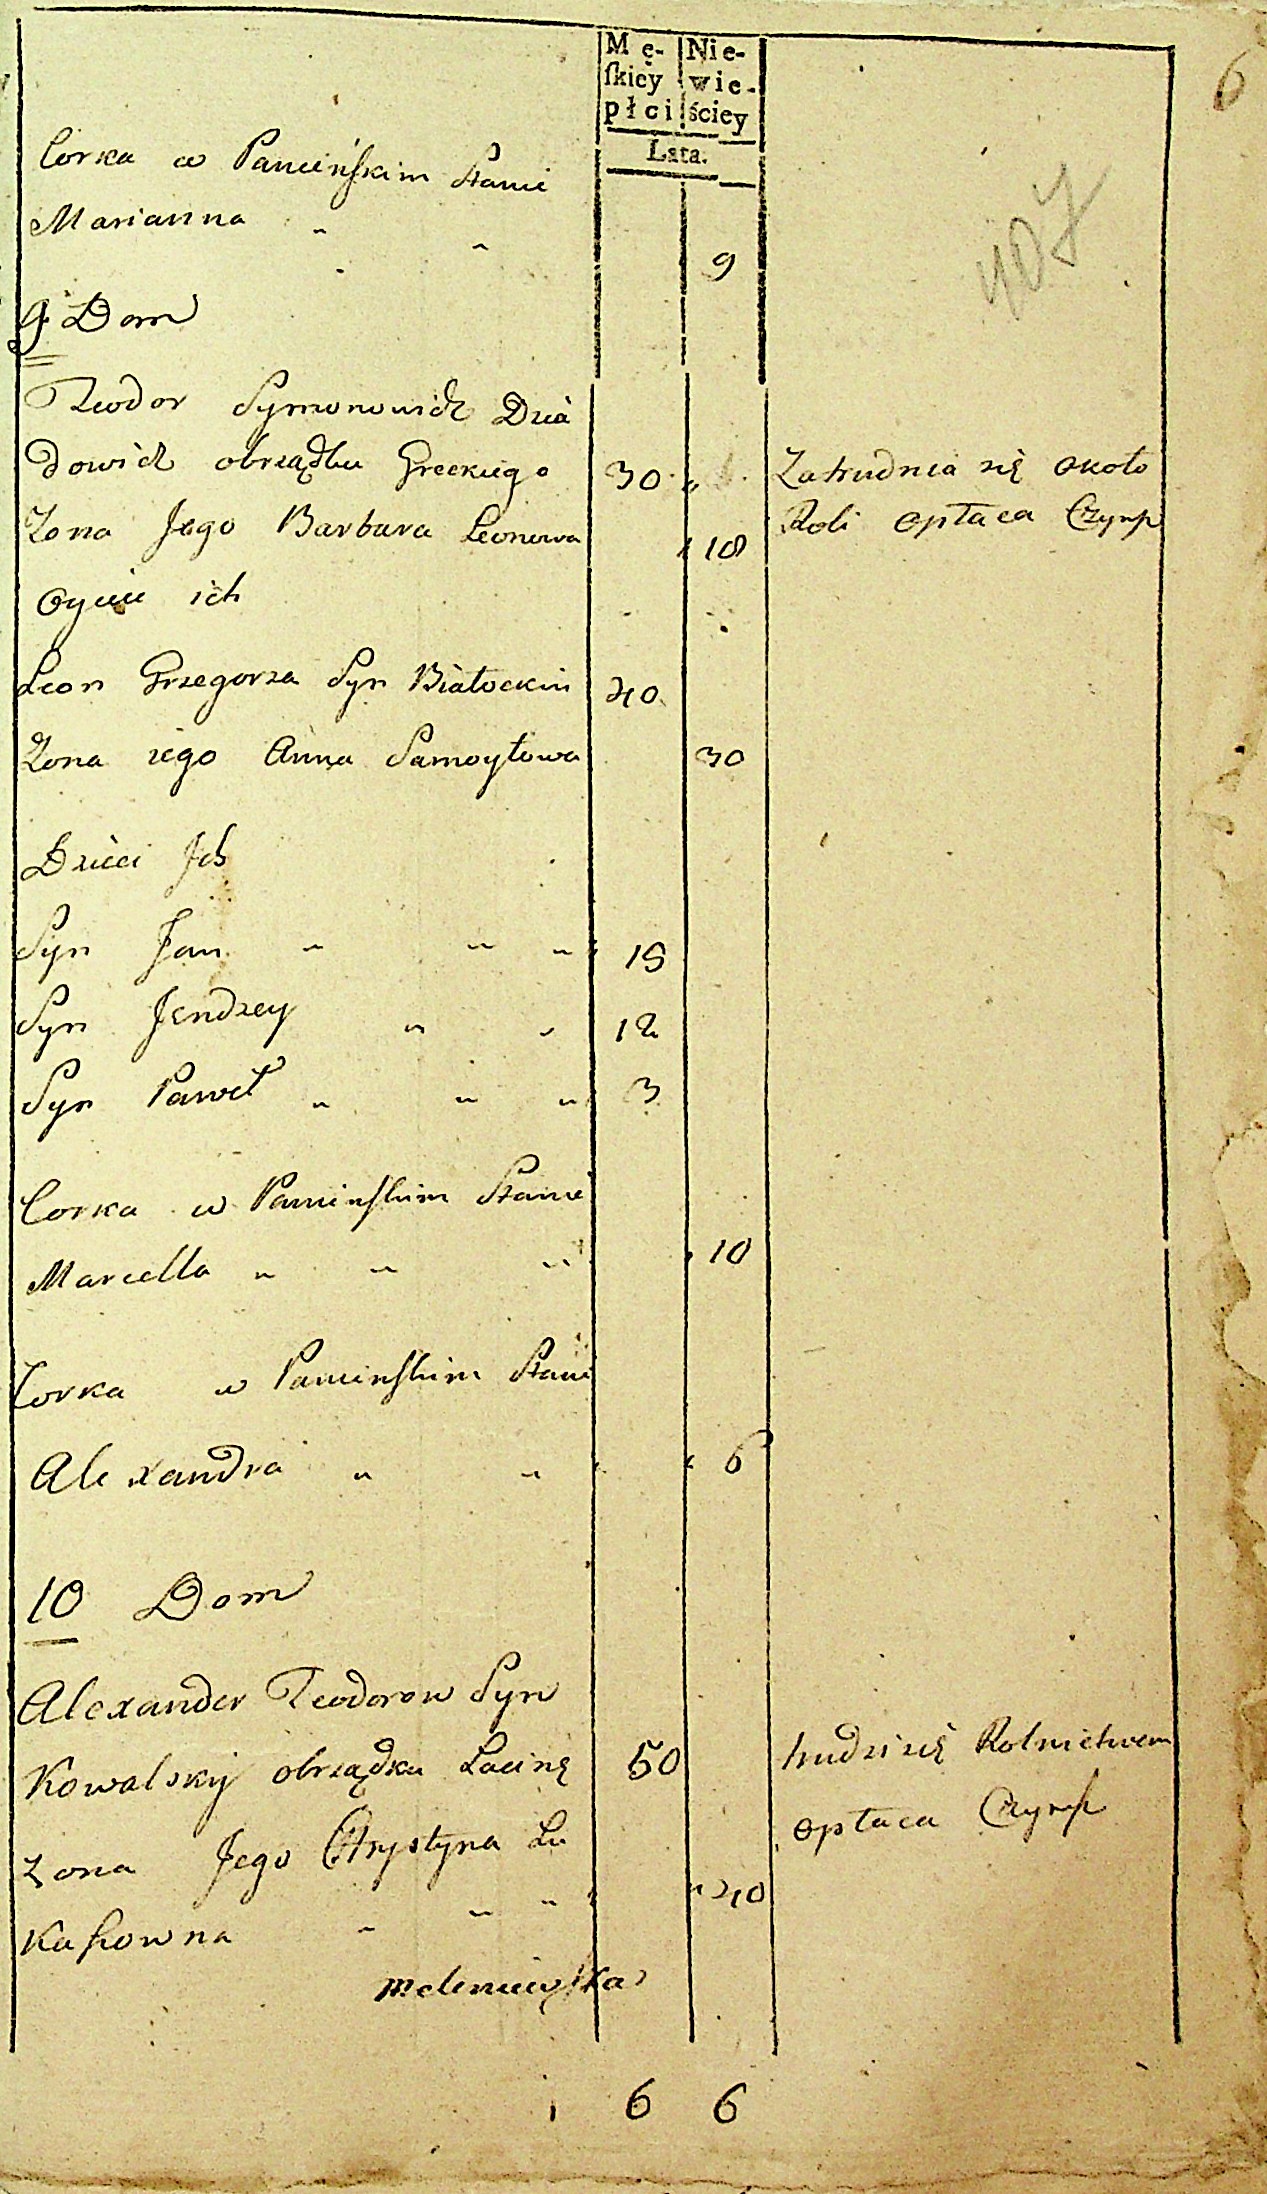 Mę- Nie-
skiey wie-
płci ściey
Lata.
6
407
Corka w Panieńskim Stanie
Marianna " "
9
9 Dom
Teodor Symonowicz Dzia
dowicz obrządku Greckiego 30 " Zatrudnia się około
Żona Jego Barbara Leonowa 18 Roli opłaca Czynsz
Oycie ich
Leon Grzegorza Syn Białockiy 40
Żona iego Anna Samoyłowa 30
Dzieci Jch
Syn Jan " " " 15
Syn Jendrzey " " 12
Syn Paweł " " " 3
Corka w Panieńskim Stanie
Marcella " " " 10
Corka w Panieńskim Stani
Alexandra " " 6
10 Dom
Alexander Teodorow Syn
Kowalskiy obrządku Lacinę 50 trudzi się Rolnictwem
opłaca Czynsz
Zona Jego Chrystyna Lu
kaszowna " " " 40
meleniewska
6 6